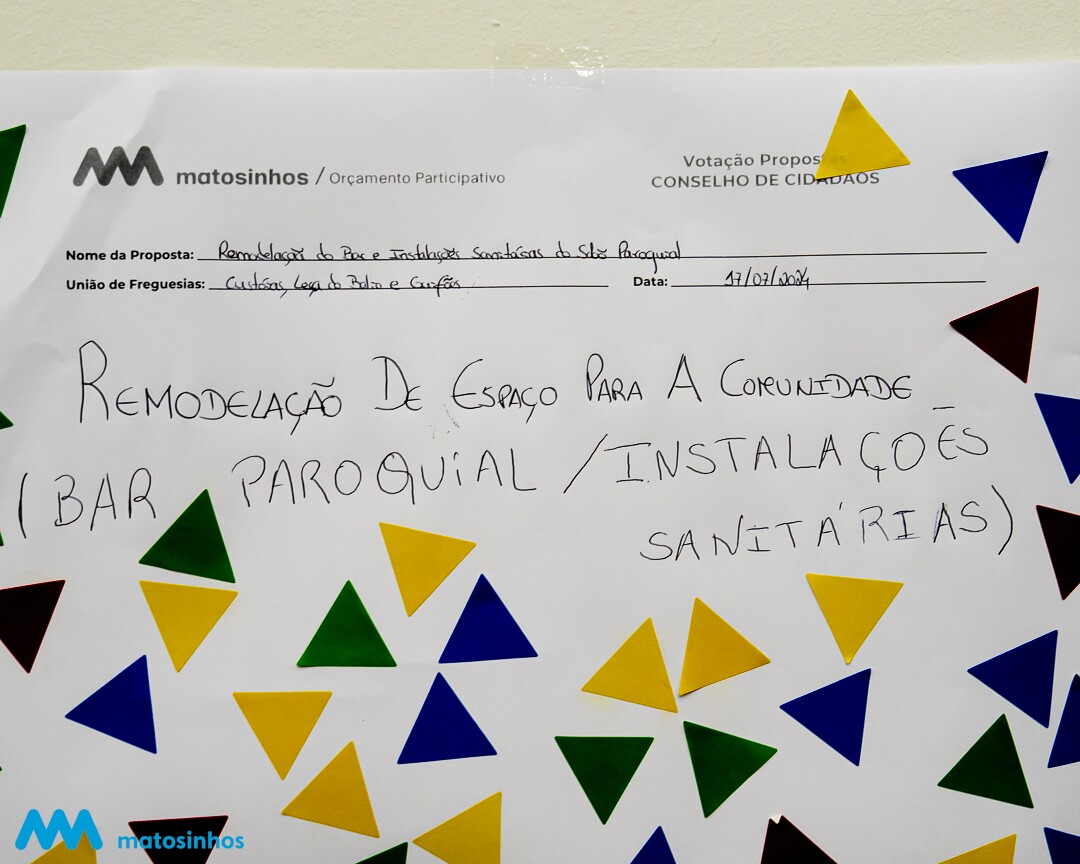 matosinhos / Orçamento Participativo
Votação Propos
CONSELHO DE CIDADÃOS
Nome da Proposta: Remodelação do Bar e Instalações Sanitárias do Salão Paroquial
União de Freguesias: Custóias, Leça do Balio e Guifões Data: 17/07/2024
REMODELAÇÃO DE ESPAÇO PARA A COMUNIDADE
(BAR PAROQUIAL / INSTALAÇÕES
SANITÁRIAS)
matosinhos